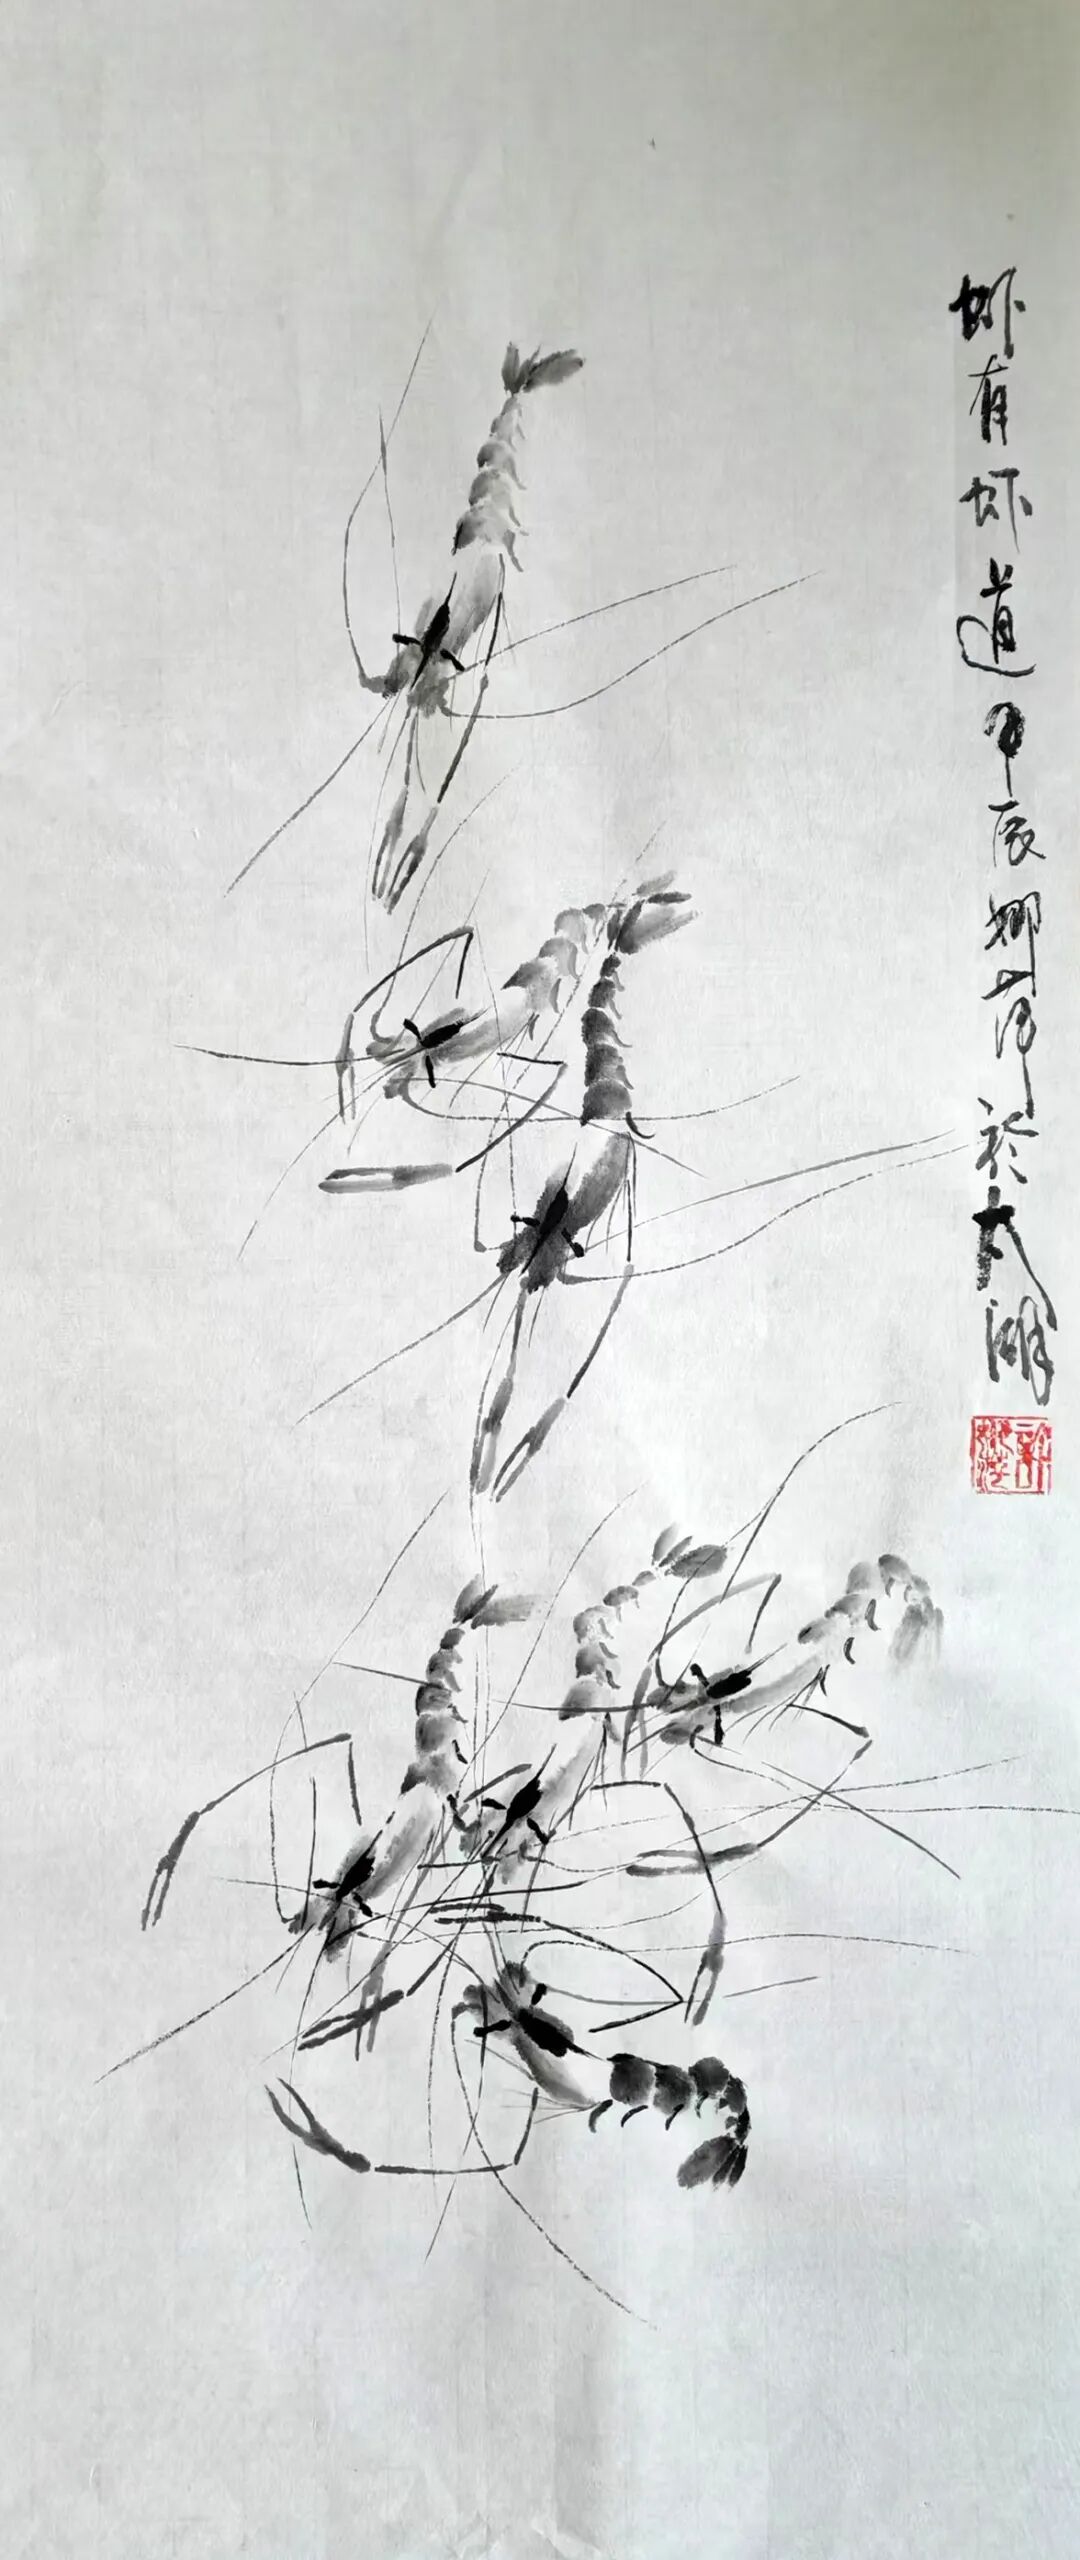 虾有虾道甲辰娜萍於太湖